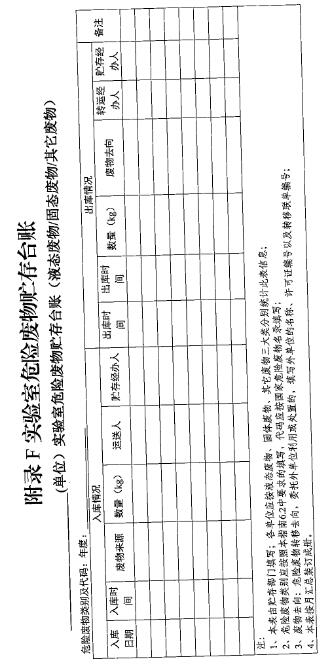 附录 F 实验室危险废物贮存台账
(单位)实验室危险废物贮存台账（液态废物/固态废物/其它废物）
危险废物类别及代码： 年度：
入库情况 出库情况 备注
入库日期 入库时间 废物来源 数量（kg） 运送人 贮存经办人 出库时间 出库时间 数量（kg） 废物去向 转运经办人 贮存经办人
注：
1、本表由贮存部门填写；各单位应按液态废物、固体废物、其它废物三大类分别统计此表信息；
2、危险废物类别应按照本指南6.2中要求的填写，代码应按国家危险废物名录填写；
3、废物去向：危险废物转移去向，委托外单位利用或处置的，填写外单位的名称、许可证编号以及转移联单编号；
4、本表按月汇总装订成册。